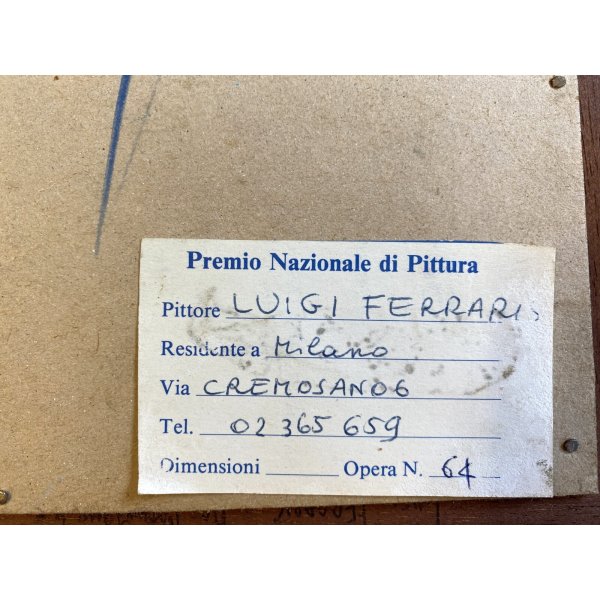 Premio Nazionale di Pittura
Pittore LUIGI FERRARIS
Residente a Milano
Via CREMOSANO 6
Tel. 02 365 659
Dimensioni Opera N. 64